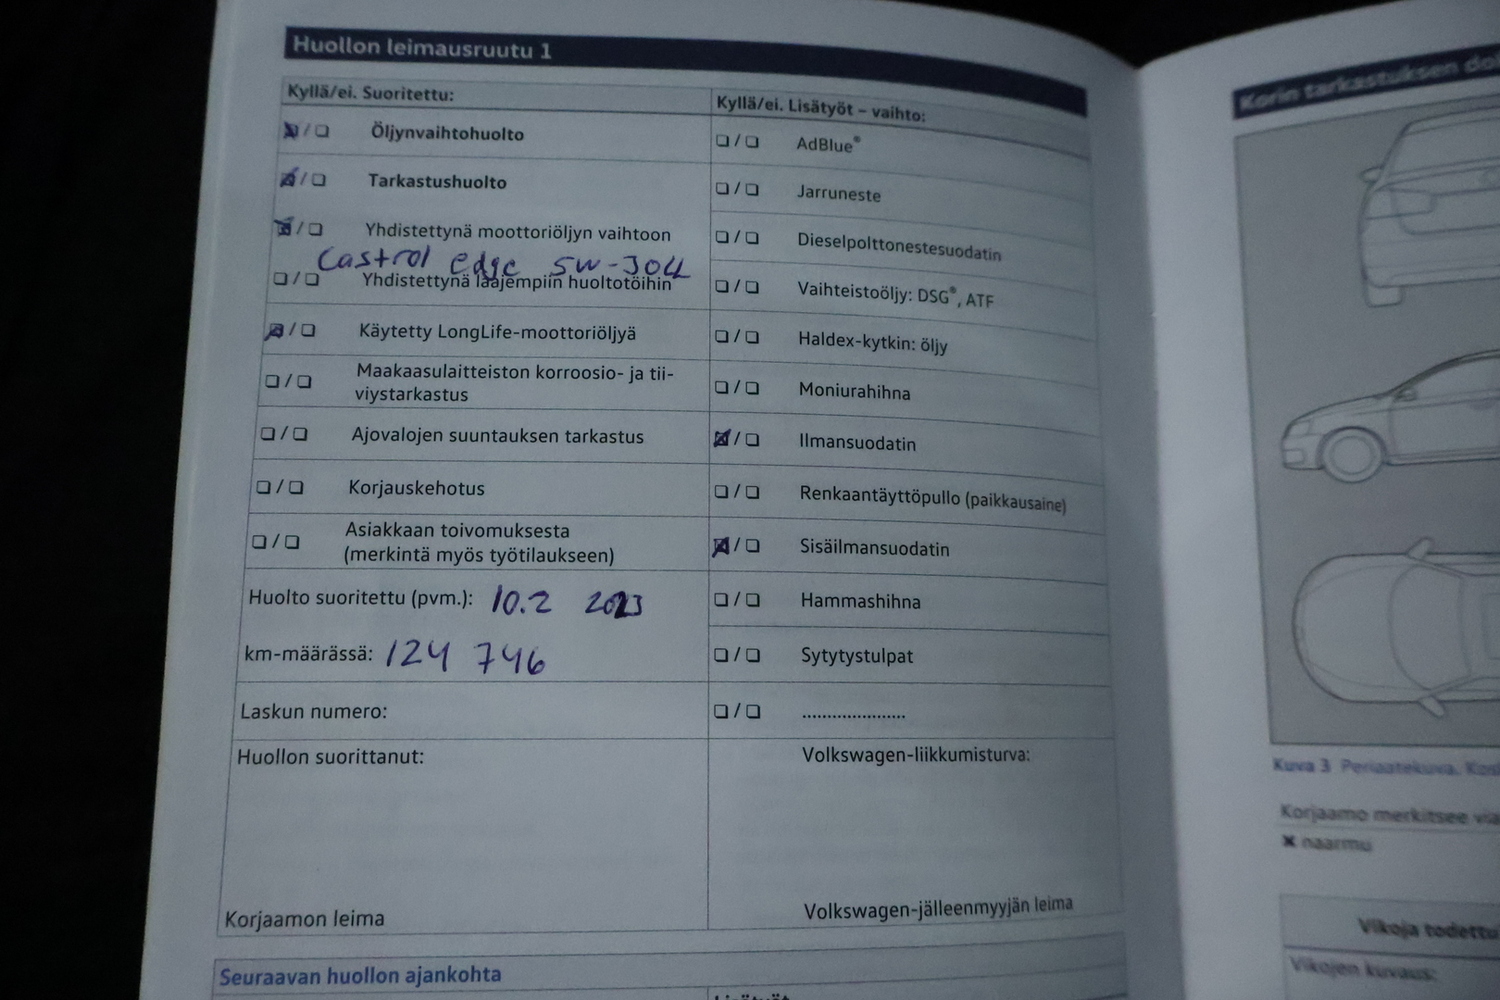 Huollon leimausruutu 1
Kyllä/ei. Suoritettu:
❑ / ❑ Öljynvaihtohuolto
❑ / ❑ Tarkastushuolto
❑ / ❑ Yhdistettynä moottoriöljyn vaihtoon
Castrol edge 5W-30LL
❑ / ❑ Yhdistettynä laajempiin huoltotöihin
❑ / ❑ Käytetty LongLife-moottoriöljyä
❑ / ❑ Maakaasulaitteiston korroosio- ja tii-
viystarkastus
❑ / ❑ Ajovalojen suuntauksen tarkastus
❑ / ❑ Korjauskehotus
❑ / ❑ Asiakkaan toivomuksesta
(merkintä myös työtilaukseen)
Huolto suoritettu (pvm.): 10.2 2023
km-määrässä: 124 746
Laskun numero:
Huollon suorittanut:
Korjaamon leima
Kyllä/ei. Lisätyöt – vaihto:
❑ / ❑ AdBlue®
❑ / ❑ Jarruneste
❑ / ❑ Dieselpolttonestesuodatin
❑ / ❑ Vaihteistoöljy: DSG®, ATF
❑ / ❑ Haldex-kytkin: öljy
❑ / ❑ Moniurahihna
❑ / ❑ Ilmansuodatin
❑ / ❑ Renkaantäyttöpullo (paikkausaine)
❑ / ❑ Sisäilmansuodatin
❑ / ❑ Hammashihna
❑ / ❑ Sytytystulpat
❑ / ❑ .....................
Volkswagen-liikkumisturva:
Volkswagen-jälleenmyyjän leima
Seuraavan huollon ajankohta
Lisätyöt
Korin tarkastuksen
Kuva 3 Periaatekuva.
Korjaamo merkitsee
✖ naarmu
Vikoja todettu
Vikojen kuvaus: